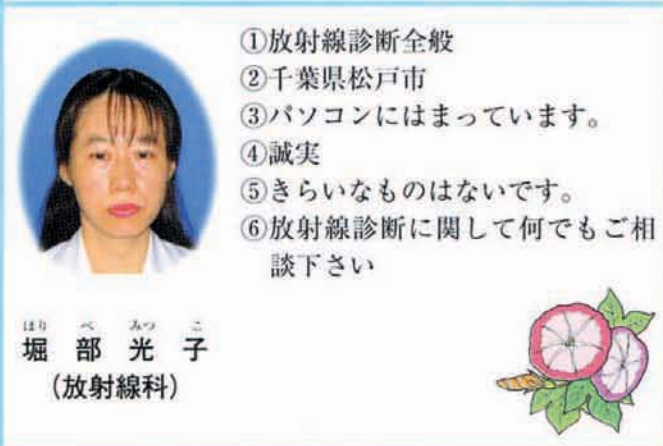 ①放射線診断全般
②千葉県松戸市
③パソコンにはまっています。
④誠実
⑤きらいなものはないです。
⑥放射線診断に関して何でもご相
談下さい
ほり べ みつ こ
堀 部 光 子
(放射線科)